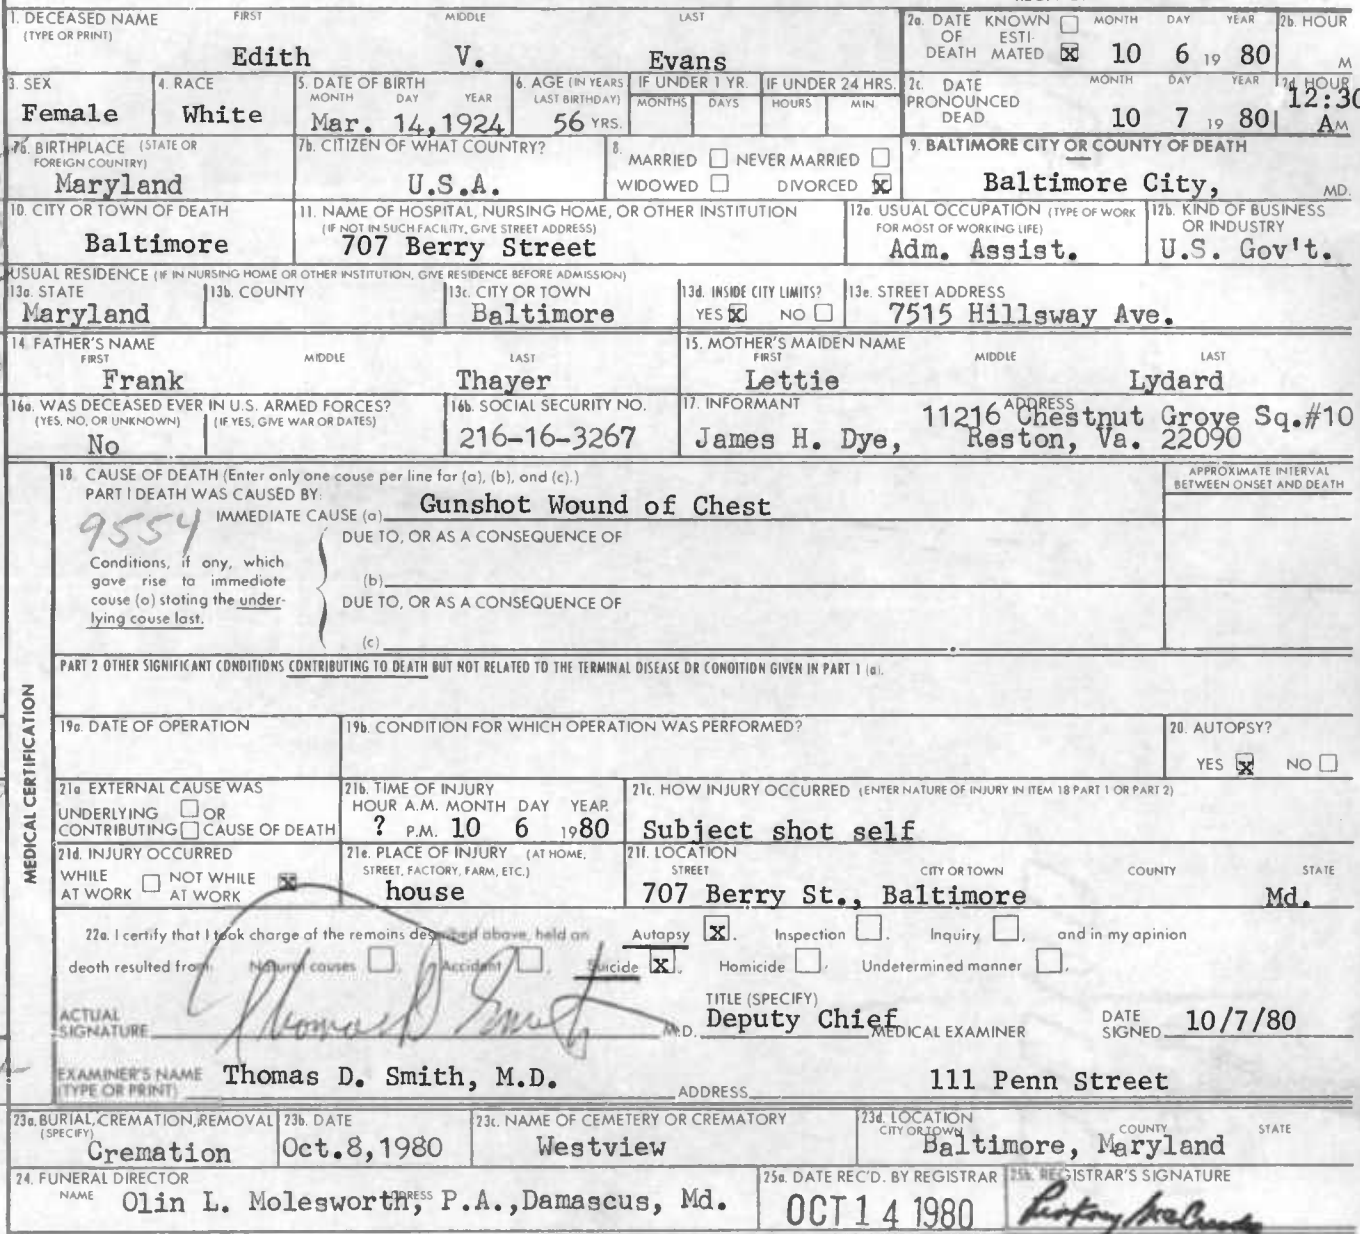 1. DECEASED NAME FIRST MIDDLE LAST
(TYPE OR PRINT)
Edith V. Evans
2a. DATE KNOWN ☐ MONTH DAY YEAR 2b. HOUR
OF ESTI-
DEATH MATED ☒ 10 6 19 80 M
3. SEX 4. RACE 5. DATE OF BIRTH 6. AGE (IN YEARS IF UNDER 1 YR. IF UNDER 24 HRS.
MONTH DAY YEAR LAST BIRTHDAY) MONTHS DAYS HOURS MIN.
Female White Mar. 14,1924 56 YRS.
2c. DATE MONTH DAY YEAR 2d HOUR
PRONOUNCED 12:30
DEAD 10 7 19 80 AM
7a. BIRTHPLACE (STATE OR
FOREIGN COUNTRY)
Maryland
7b. CITIZEN OF WHAT COUNTRY?
U.S.A.
8.
MARRIED ☐ NEVER MARRIED ☐
WIDOWED ☐ DIVORCED ☒
9. BALTIMORE CITY OR COUNTY OF DEATH
Baltimore City, MD.
10. CITY OR TOWN OF DEATH
Baltimore
11. NAME OF HOSPITAL, NURSING HOME, OR OTHER INSTITUTION
(IF NOT IN SUCH FACILITY, GIVE STREET ADDRESS)
707 Berry Street
12a. USUAL OCCUPATION (TYPE OF WORK
FOR MOST OF WORKING LIFE)
Adm. Assist.
12b. KIND OF BUSINESS
OR INDUSTRY
U.S. Gov't.
USUAL RESIDENCE (IF IN NURSING HOME OR OTHER INSTITUTION, GIVE RESIDENCE BEFORE ADMISSION)
13a. STATE 13b. COUNTY 13c. CITY OR TOWN 13d. INSIDE CITY LIMITS? 13e. STREET ADDRESS
Maryland Baltimore YES ☒ NO ☐ 7515 Hillsway Ave.
14 FATHER'S NAME
FIRST MIDDLE LAST
Frank Thayer
15. MOTHER'S MAIDEN NAME
FIRST MIDDLE LAST
Lettie Lydard
16a. WAS DECEASED EVER IN U.S. ARMED FORCES?
(YES, NO, OR UNKNOWN) (IF YES, GIVE WAR OR DATES)
No
16b. SOCIAL SECURITY NO.
216-16-3267
17. INFORMANT ADDRESS
11216 Chestnut Grove Sq.#10
James H. Dye, Reston, Va. 22090
MEDICAL CERTIFICATION
18 CAUSE OF DEATH (Enter only one couse per line for (a), (b), and (c).)
PART I DEATH WAS CAUSED BY:
APPROXIMATE INTERVAL
BETWEEN ONSET AND DEATH
9554
IMMEDIATE CAUSE (a) Gunshot Wound of Chest
DUE TO, OR AS A CONSEQUENCE OF
Conditions, if any, which
gave rise to immediate
couse (a) stating the under-
lying couse last.
(b)
DUE TO, OR AS A CONSEQUENCE OF
(c)
PART 2 OTHER SIGNIFICANT CONDITIONS CONTRIBUTING TO DEATH BUT NOT RELATED TO THE TERMINAL DISEASE OR CONDITION GIVEN IN PART 1 (a).
19a. DATE OF OPERATION 19b. CONDITION FOR WHICH OPERATION WAS PERFORMED? 20. AUTOPSY?
YES ☒ NO ☐
21a EXTERNAL CAUSE WAS
UNDERLYING ☐ OR
CONTRIBUTING ☐ CAUSE OF DEATH
21b. TIME OF INJURY
HOUR A.M. MONTH DAY YEAR
? P.M. 10 6 1980
21c. HOW INJURY OCCURRED (ENTER NATURE OF INJURY IN ITEM 18 PART 1 OR PART 2)
Subject shot self
21d. INJURY OCCURRED
WHILE ☐ NOT WHILE ☒
AT WORK AT WORK
21e. PLACE OF INJURY (AT HOME,
STREET, FACTORY, FARM, ETC.)
house
21f. LOCATION
STREET CITY OR TOWN COUNTY STATE
707 Berry St., Baltimore Md.
22a. I certify that I took charge of the remains described above, held an Autopsy ☒. Inspection ☐. Inquiry ☐, and in my opinion
death resulted from: Natural causes ☐, Accident ☐, Suicide ☒. Homicide ☐. Undetermined manner ☐.
ACTUAL
SIGNATURE Thomas D Smith M.D.
TITLE (SPECIFY)
Deputy Chief MEDICAL EXAMINER
DATE
SIGNED 10/7/80
EXAMINER'S NAME
(TYPE OR PRINT) Thomas D. Smith, M.D. ADDRESS 111 Penn Street
23a. BURIAL, CREMATION, REMOVAL 23b. DATE 23c. NAME OF CEMETERY OR CREMATORY 23d. LOCATION
(SPECIFY) CITY OR TOWN COUNTY STATE
Cremation Oct.8,1980 Westview Baltimore, Maryland
24. FUNERAL DIRECTOR
NAME ADDRESS
Olin L. Molesworth, P.A.,Damascus, Md.
25a. DATE REC'D. BY REGISTRAR
OCT 14 1980
25b. REGISTRAR'S SIGNATURE